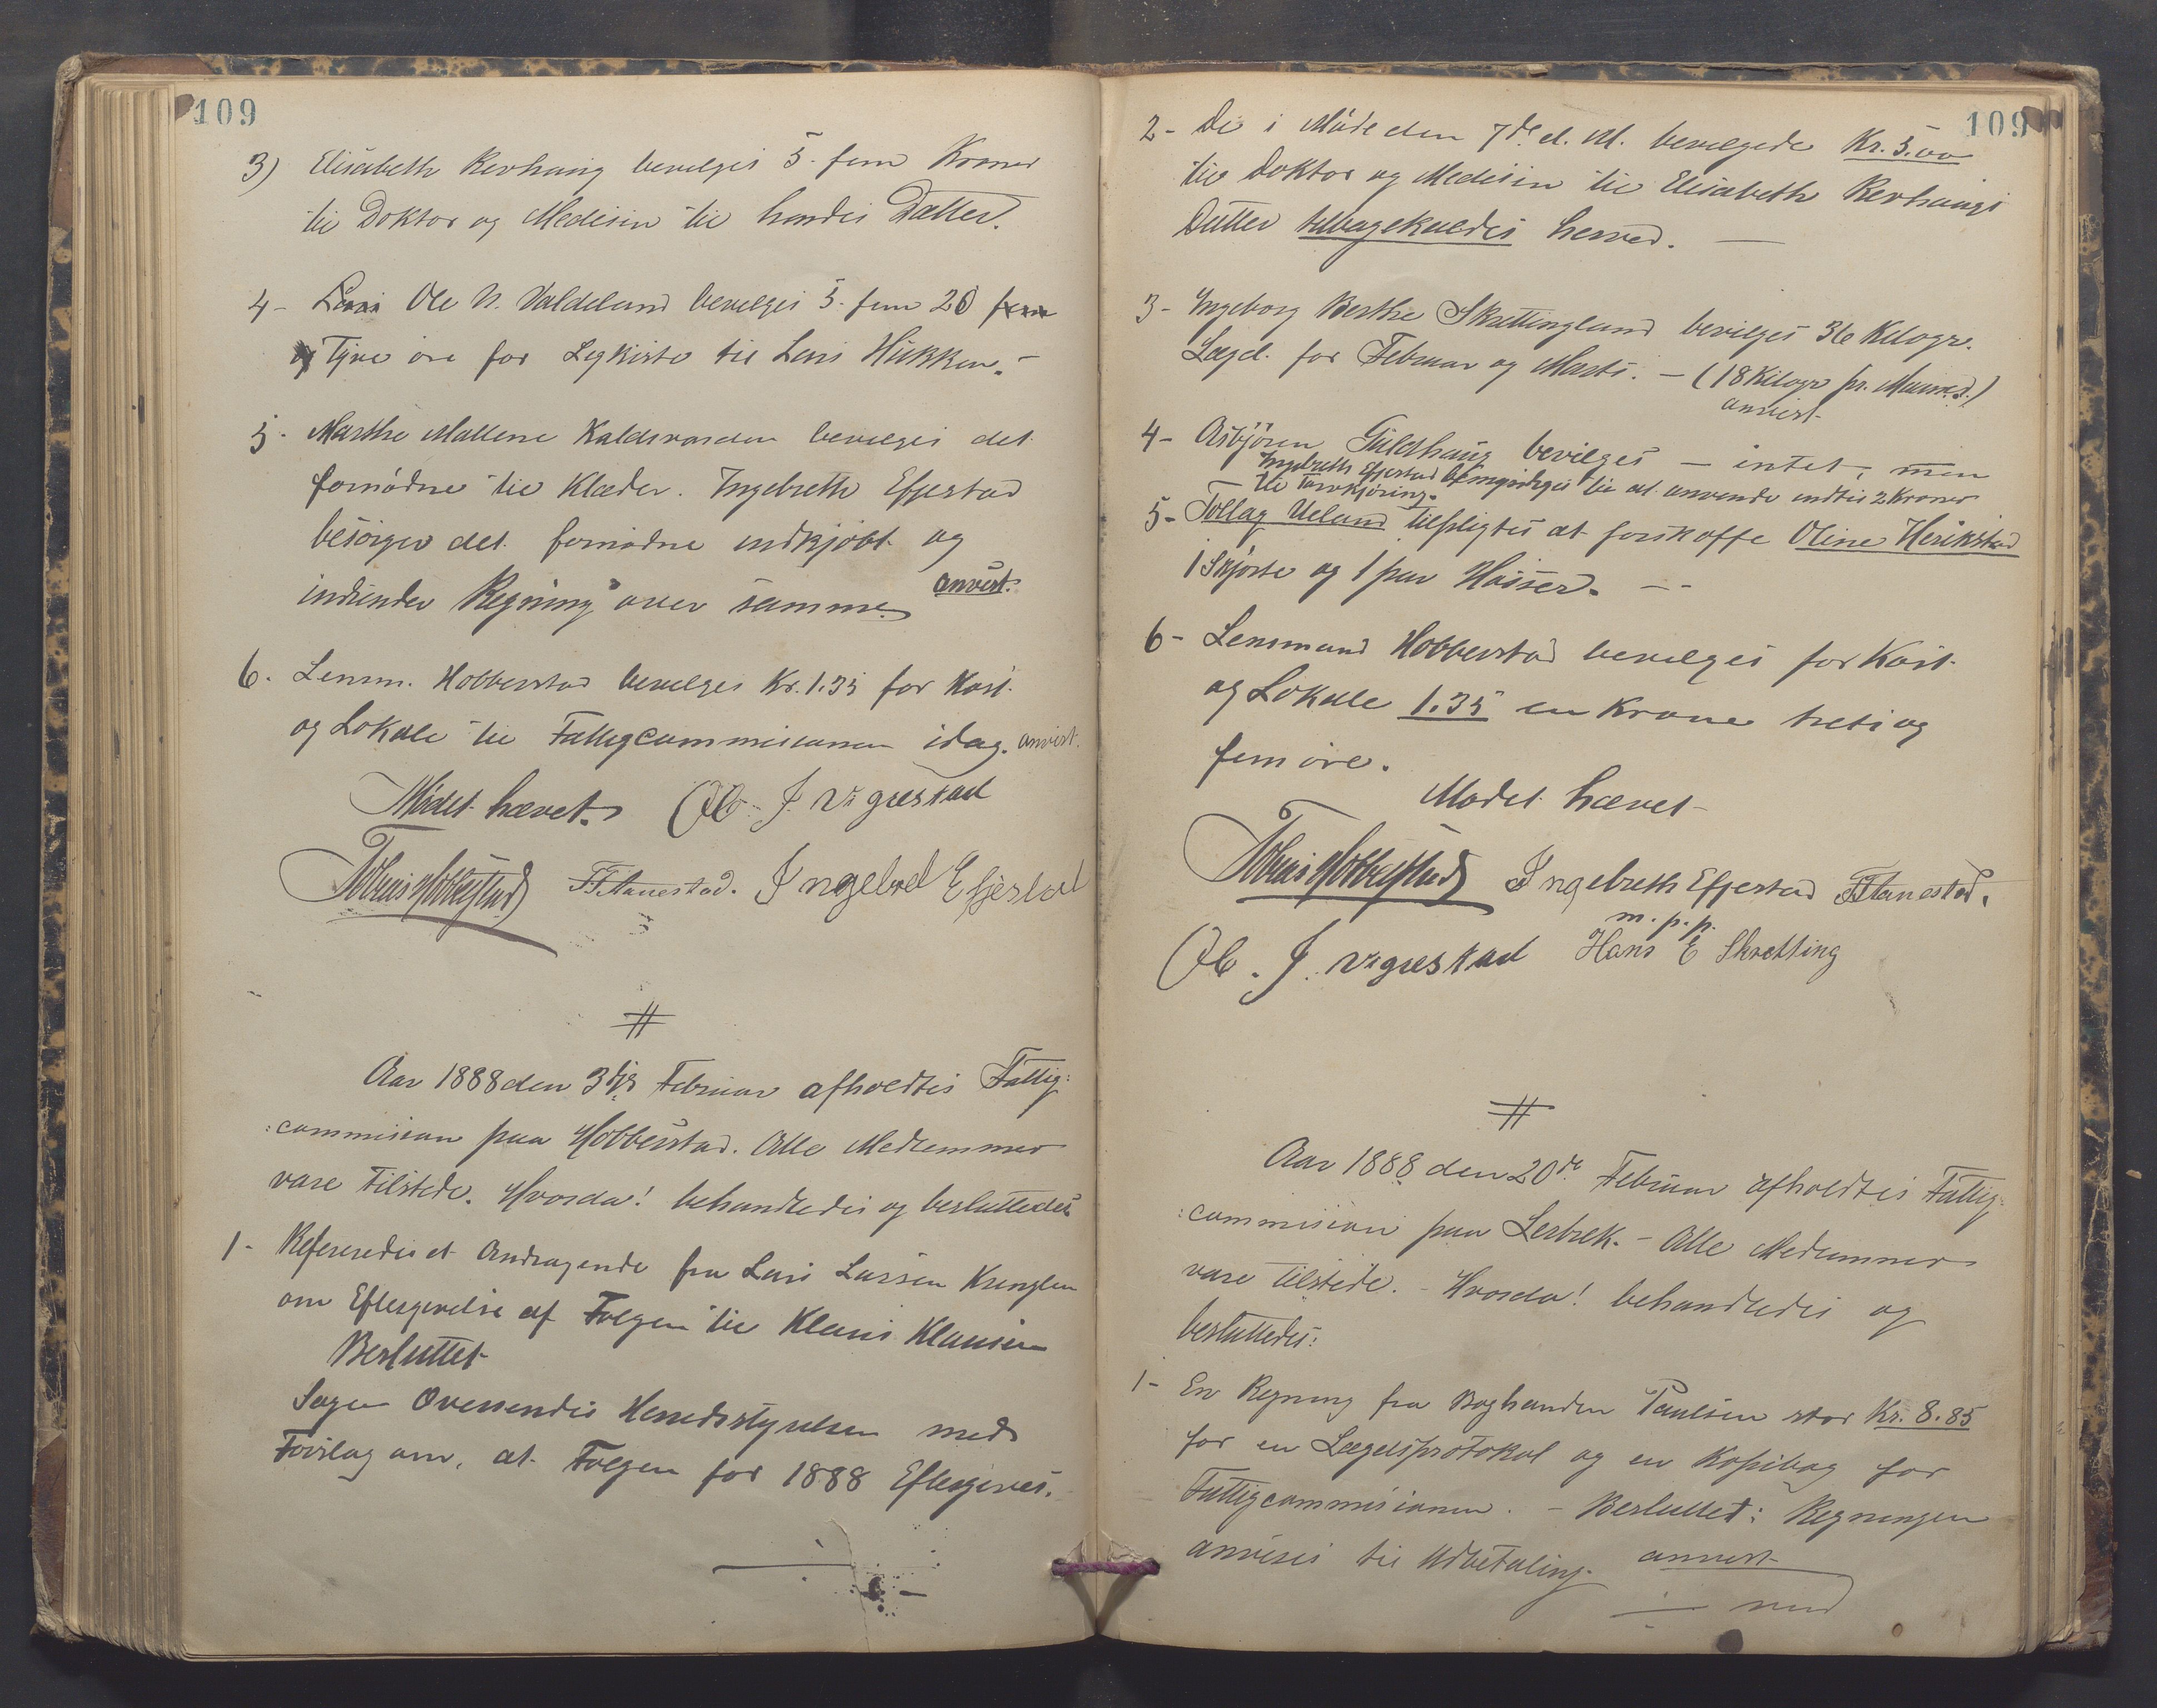 109
3) Elisabeth Kerhaug bevelges 5- fem Kroner
til Doktor og Medisin til hendes Datter.
4- Lars Ole N. Valdeland bevelges 5- fem 20 fem
og Tyve øre for Legkiste til Lars Hükken.-
5- Marthe Mallene Kaldsvarden bevelges det
fornødne til Klæder. Ingebreth Efjestad
besørger det fornødne indkjøbt og
indsender Regning over samme. anvist.
6. Lensm. Hobberstad bevelges Kr. 1.35 for Kost
og Lokale til Fattigcommisionen idag. anvist.
Mødet hævet. Ole J. Vigrestad
Tobias Hobberstad T. Tanestad. Ingebret Efjestad
Aar 1888 den 3dje Februar afholdtes Fattig:
:commision paa Hobberstad. Alle Medlemmer
vare tilstede. Hvorda! behandledes og besluttedes
1- Refereredes et Andragende fra Lars Larsen
om Eftergivelse af Følgen til Klaus Klausen
Besluttet
Sagen Oversendes Herredsstyrelsen med
Forslag om, at Følgen for 1888 Eftergives.
109
2- De i Møde den 7de d. M. bevelgede Kr. 5.00
til Doktor og Medisin til Elisabeth Kerhaugs
Datter tilbagekaldes herved. —
3- Ingeborg Berthe Skrettingland bevilges 36 Kilogr.
Lægd. for Februar og Marts. - (18 Kilogr pr. Maaned.)
anvist
4- Asbjøren Guldhaug bevilges - intet, men
Ingebreth Efjestad bemyndiges til at anvende indtil 2 Kroner
til Torvkjøring.
5- Tollag Ueland tilpligtes at forskaffe Oline Herikstad
1 Skjorte og 1 par Hoser. --
6- Lensmand Hobberstad bevelges for Kost
og Lokale 1.35 en Krone treti og
fem øre.
Mødet hævet
Tobias Hobberstad Ingebreth Efjestad T. Tanestad.
m.p.p.
Ole. J. Vigrestad Hans E Skretting
Aar 1888 den 20de Februar afholdtes Fattig:
:commision paa Lerbrek. - Alle Medlemmer
vare tilstede. - Hvorda! behandledes og
besluttedes:
1- En Regning fra Boghandler Paulsen stor Kr. 8.85
for en Lægdsprotokol og en Kopibog for
Fattigcommisionen. - Besluttet: Regningen
anvises til Udbetaling. anvist